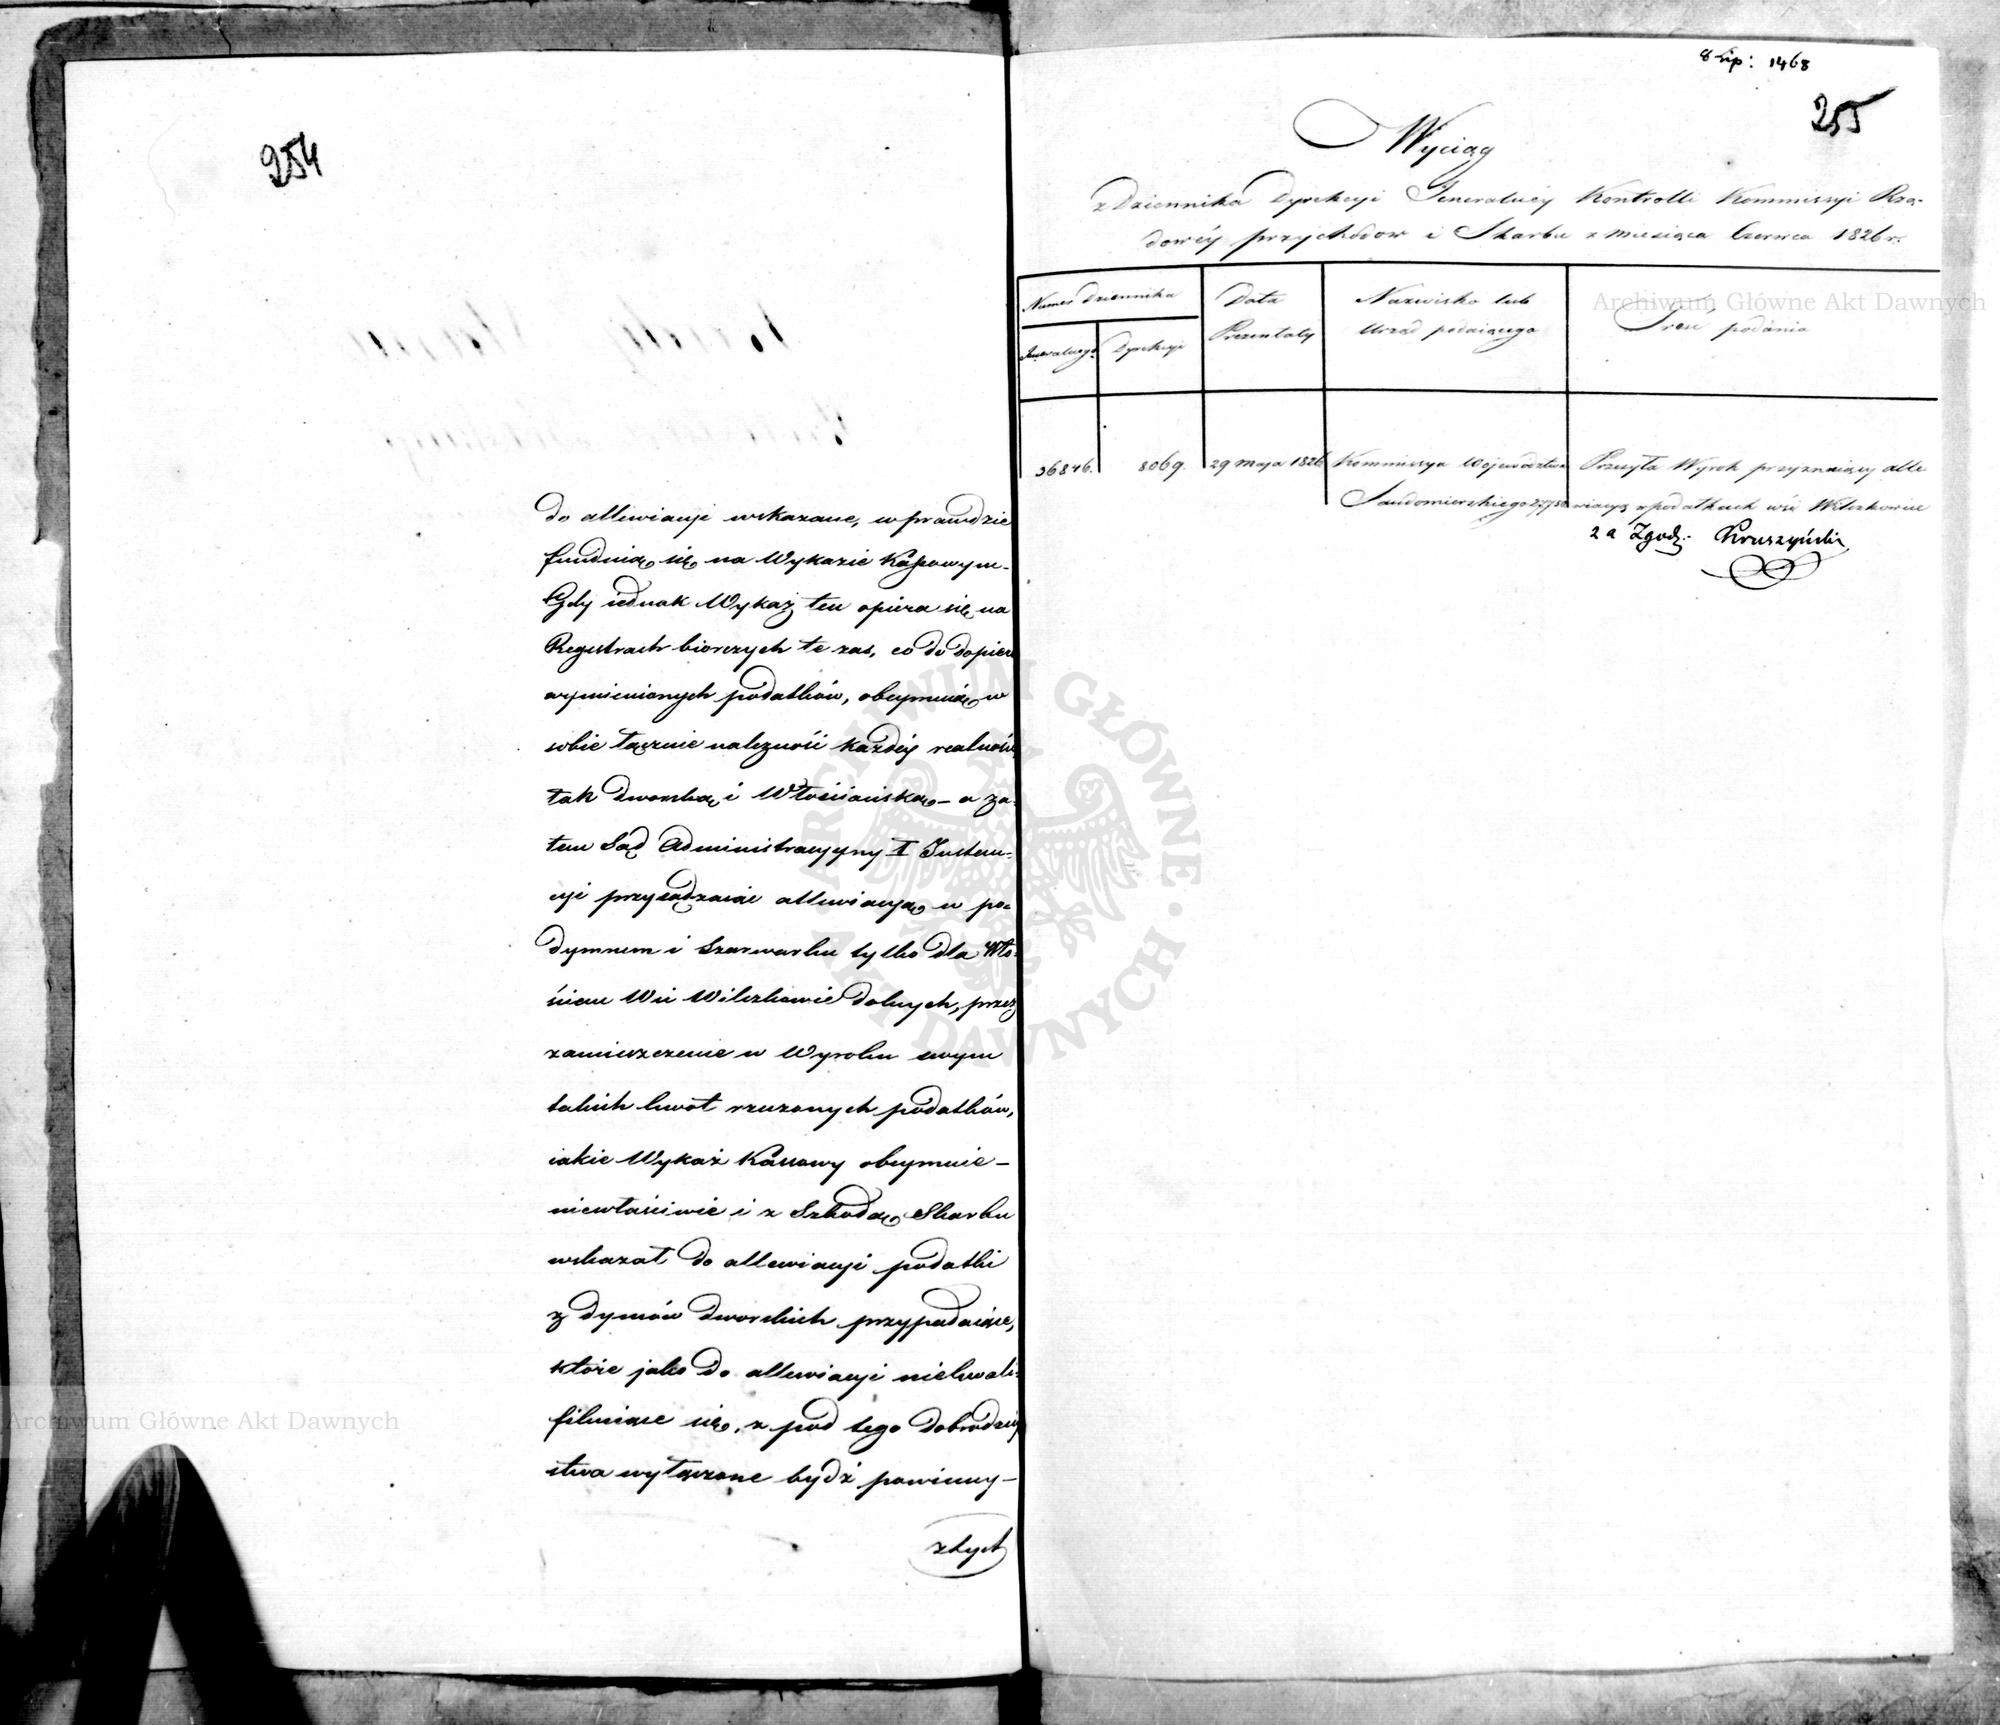 254
do allewiacyi wskazane, w prawdzie
funduią się na Wykazie Kassowym–
Gdy iednak Wykaz ten opiera się na
Registrach biorczych te zas, co do dopiero
wymienionych podatków, obeymuią w
sobie łącznie należność każdéy realności
tak dworską i Włościańską – a za-
tem Sąd Administracyyny I Instan-
cyi przysądzaiąc allewiacyą w po-
dymnem i Szarwarku tylko dla Wło-
ścian Wsi Wilczkowic dolnych, przez
zamieszczenie w Wyroku swym
takich kwot rzeczonych podatków,
iakie Wykaz Kassowy obeymuie –
niewłaściwie i z Szkodą Skarbu
wskazał do allewiacyi podatki
z dymów dworskich przypadaiące,
które jako do allewiacyi niekwali-
fikuiące się, z pod tego dobrodziey
stwa wyłączone bydź powinny –
z tych
8 Lip: 1468
255
Wyciąg
z Dziennika Dyrekcyi Jeneralnéy Kontrolli Kommissyi Rzą-
dowéy przychodow i Skarbu z miesiąca Czerwca 1826 r.
Numer dziennika
Jeneralnego
Dyrekcyi
Data
Prezentaty
Nazwisko lub
Urząd podaiącego
Treść podania
36846.
8069.
29 Maja 1826
Kommissya Województwa
Sandomierskiego
Przesyła Wyrok przyznaiący alle
wiacyą w podatkach wsi Wilczkowice
za Zgod: Kruszyński
Archiwum Główne Akt Dawnych
ARCHIWUM GŁÓWNE AKT DAWNYCH
Archiwum Główne Akt Dawnych